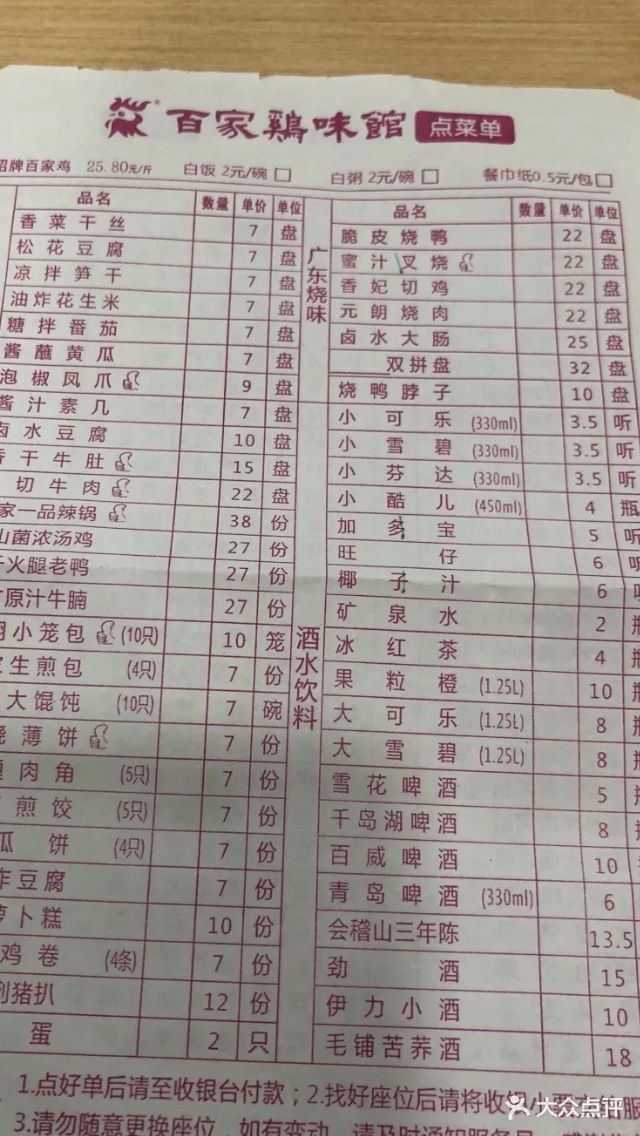 百家鷄味館 点菜单
招牌百家鸡 25.80元/斤 白饭 2元/碗 白粥 2元/碗 餐巾纸0.5元/包
品名 数量 单价 单位
香菜干丝 7 盘
松花豆腐 7 盘
凉拌笋干 7 盘
油炸花生米 7 盘
糖拌番茄 7 盘
酱蘸黄瓜 7 盘
泡椒凤爪 9 盘
酱汁素几 7 盘
卤水豆腐 10 盘
香干牛肚 15 盘
切牛肉 22 盘
家一品辣锅 38 份
山菌浓汤鸡 27 份
火腿老鸭 27 份
原汁牛腩 27 份
小笼包 (10只) 10 笼
生煎包 (4只) 7 份
大馄饨 (10只) 7 碗
薄饼 7 份
肉角 (5只) 7 份
煎饺 (5只) 7 份
瓜饼 (4只) 7 份
炸豆腐 7 份
萝卜糕 10 份
鸡卷 (4条) 7 份
猪扒 12 份
蛋 2 只
品名 数量 单价 单位
广东烧味
脆皮烧鸭 22 盘
蜜汁叉烧 22 盘
香妃切鸡 22 盘
元朗烧肉 22 盘
卤水大肠 25 盘
双拼盘 32 盘
烧鸭脖子 10 盘
酒水饮料
小可乐 (330ml) 3.5 听
小雪碧 (330ml) 3.5 听
小芬达 (330ml) 3.5 听
小酷儿 (450ml) 4 瓶
加多宝 5 听
旺仔 6 听
椰子汁 6 听
矿泉水 2 瓶
冰红茶 4 瓶
果粒橙 (1.25L) 10 瓶
大可乐 (1.25L) 8 瓶
大雪碧 (1.25L) 8 瓶
雪花啤酒 5 瓶
千岛湖啤酒 8
百威啤酒 10
青岛啤酒 (330ml) 6
会稽山三年陈 13.5
劲酒 15
伊力小酒 10
毛铺苦荞酒 18
1.点好单后请至收银台付款；2.找好座位后请将收
3.请勿随意更换座位，如有变动，请及时通知服务员
大众点评